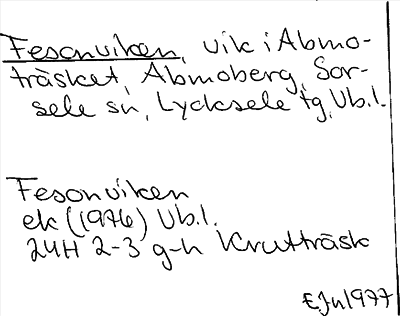 Fesonviken, vik i Abmo-
träsket, Abmoberg, Sor-
sele sn, Lycksele tg, Vb.l.
Fesonviken
ek (1976) Vb.l.
24H 2-3 g-h Krutträsk
EJn1977